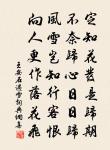 定知花發是歸期
不奈歸心日日歸
風雪豈知行客恨
向人更作落花飛
王安石遇雪